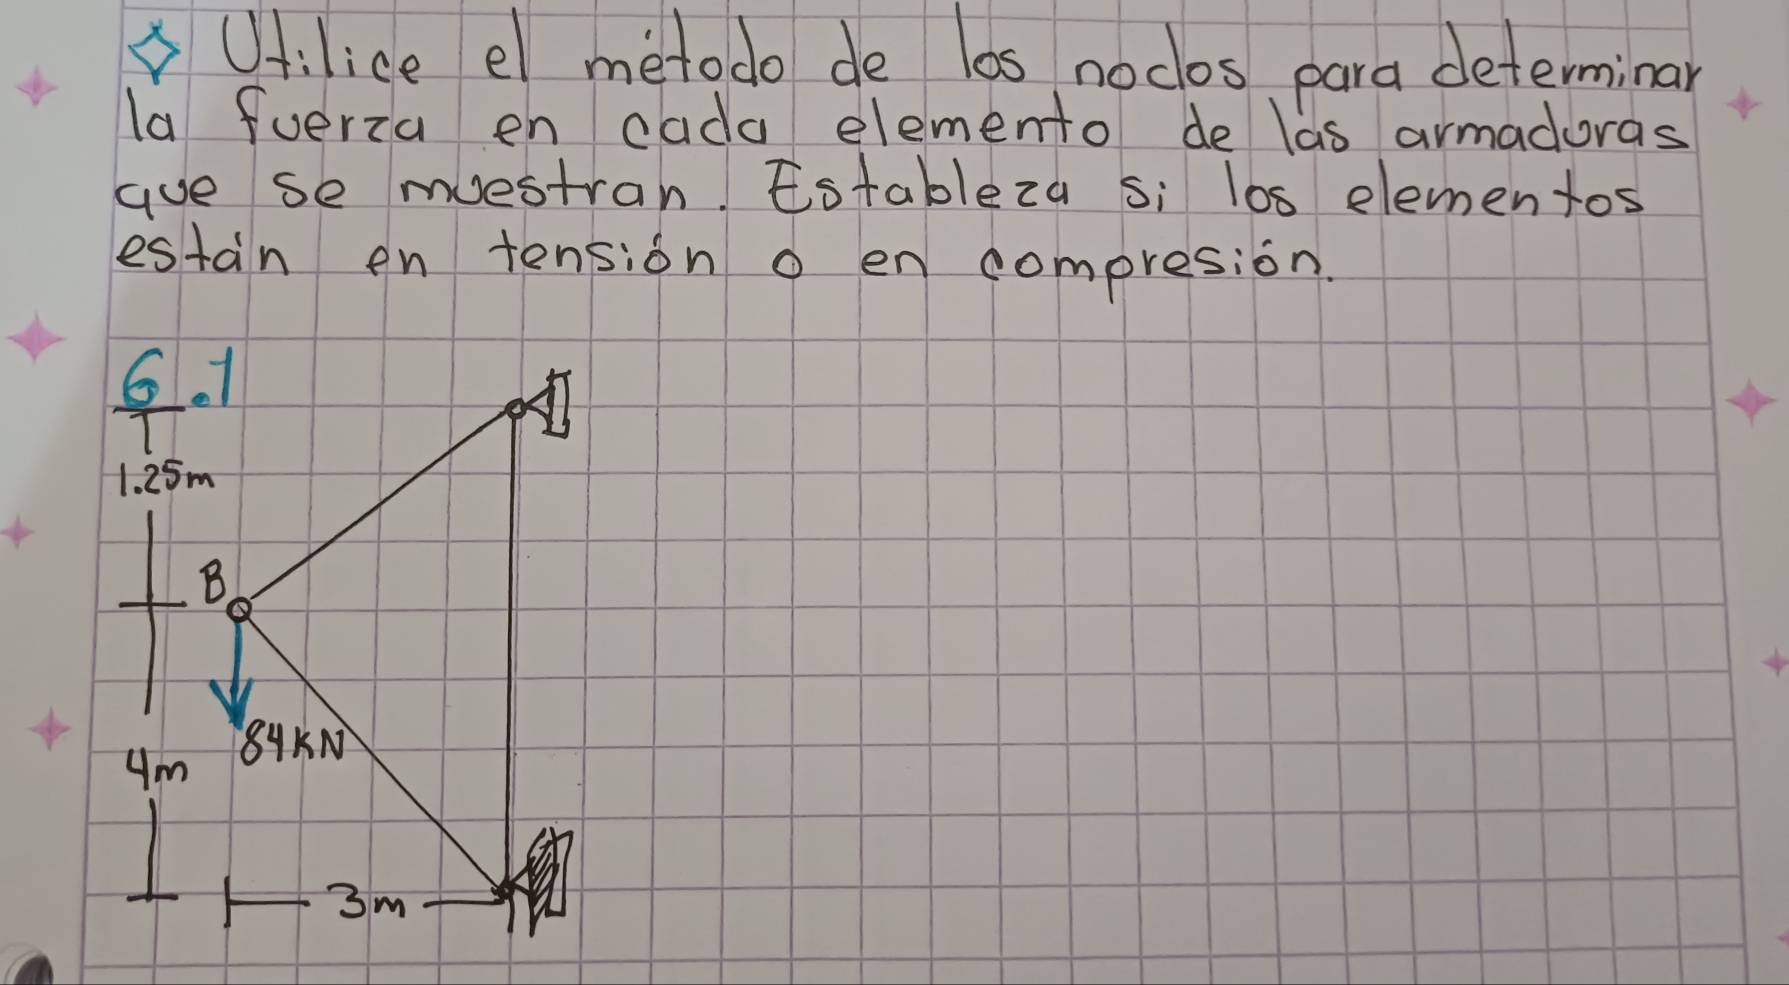 Utilice el método de los nodos para determinar
la fuerza en cada elemento de las armaduras
que se muestran. Estableza si los elementos
están en tensión o en compresión.
6.1
1.25m
B
84KN
4m
3m